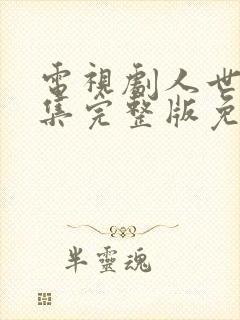 電視劇人世
集完整版免
半靈魂